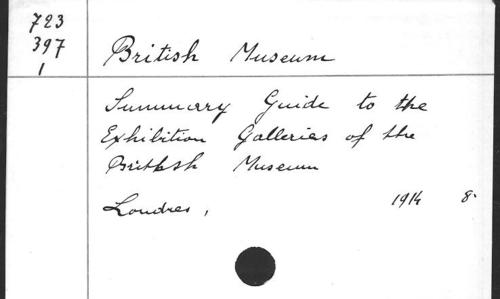 723
397
1
British Museum
Summary Guide to the
Exhibition Galleries of the
British Museum
Londres, 1914 8·